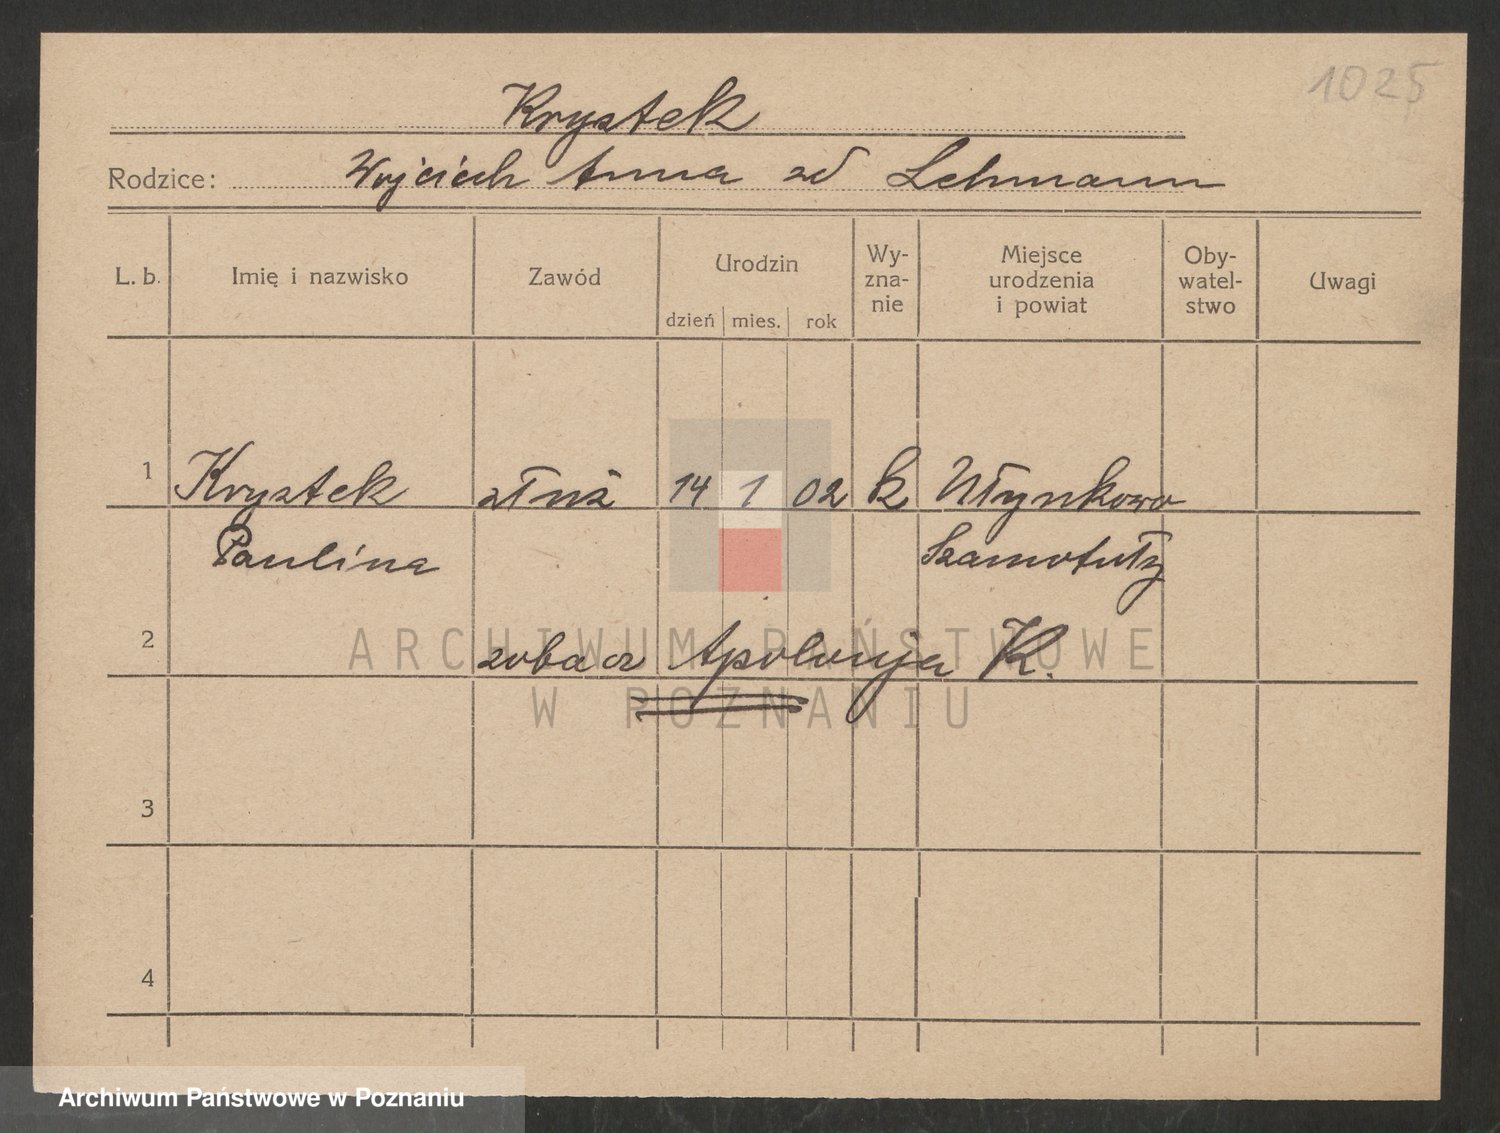 1025
Krystek
Rodzice: Wojciech Anna zd Lehmann
L. b. Imię i nazwisko Zawód Urodzin dzień mies. rok Wy-zna-nie Miejsce urodzenia i powiat Oby-watel-stwo Uwagi
1 Krystek służ 14 1 02 k Młynkowo
Paulina Szamotuły
2 zobacz Apolonja K.
3
4
ARCHIWUM PAŃSTWOWE
W POZNANIU
Archiwum Państwowe w Poznaniu